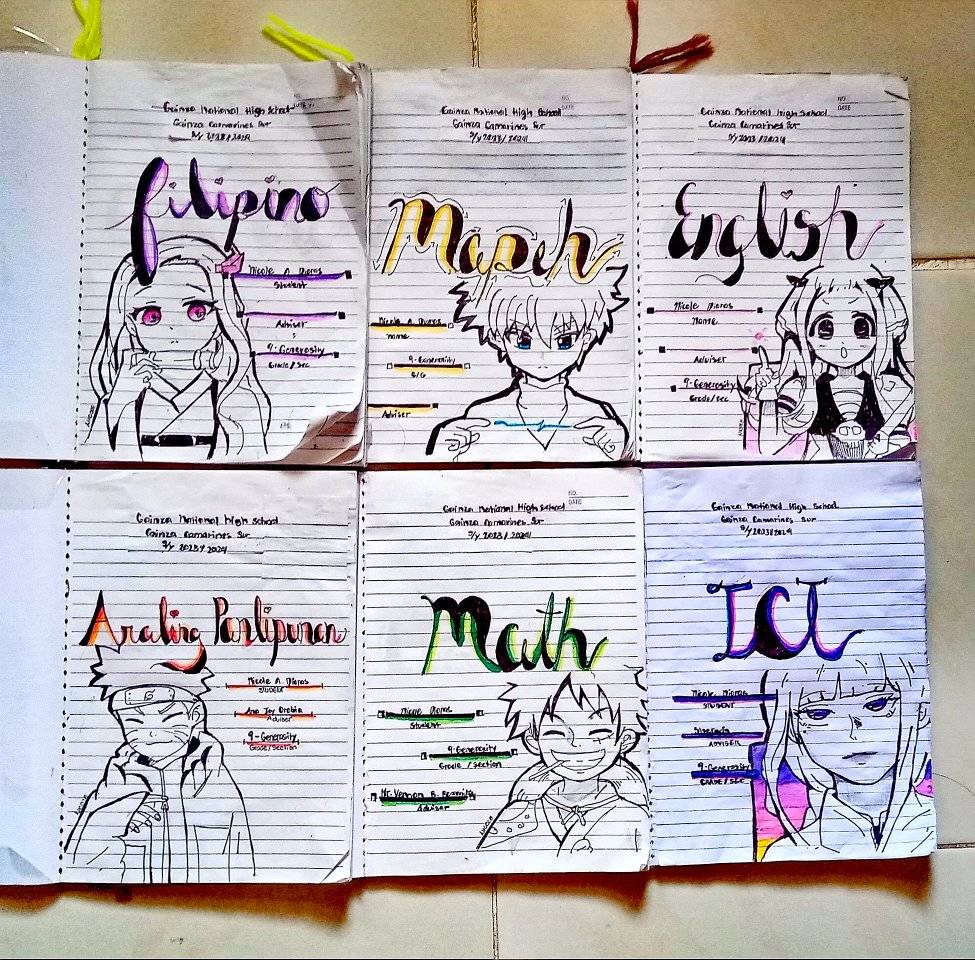 Gainza National High School
Gainza Camarines Sur
S/y 2023/2024
Filipino
Nicole A. Dioros
Student
Adviser
9-Generosity
Grade/Sec
NO.
DATE
Gainza National High School
Gainza Camarines Sur
S/y 2023/2024
Mapeh
Nicole A. Dioros
name
9-Generosity
G/S
Adviser
NO.
DATE
Gainza National High School
Gainza Camarines Sur
S/y 2023/2024
English
Nicole Dioros
Name
Adviser
9-Generosity
Grade/Sec
Gainza National High School
Gainza Camarines Sur
S/y 2023/2024
Araling Panlipunan
Nicole A. Dioros
STUDENT
Adviser
9-Generosity
Grade/Section
NO.
DATE
Gainza National High School
Gainza Camarines Sur
S/y 2023/2024
Math
Nicole Dioros
Student
9-Generosity
Grade/Section
Mr. Vernon B.
Adviser
Gainza National High School
Gainza Camarines Sur
S/y 2023/2024
ICT
Nicole Dioros
STUDENT
ADVISER
9-Generosity
GRADE/SEC